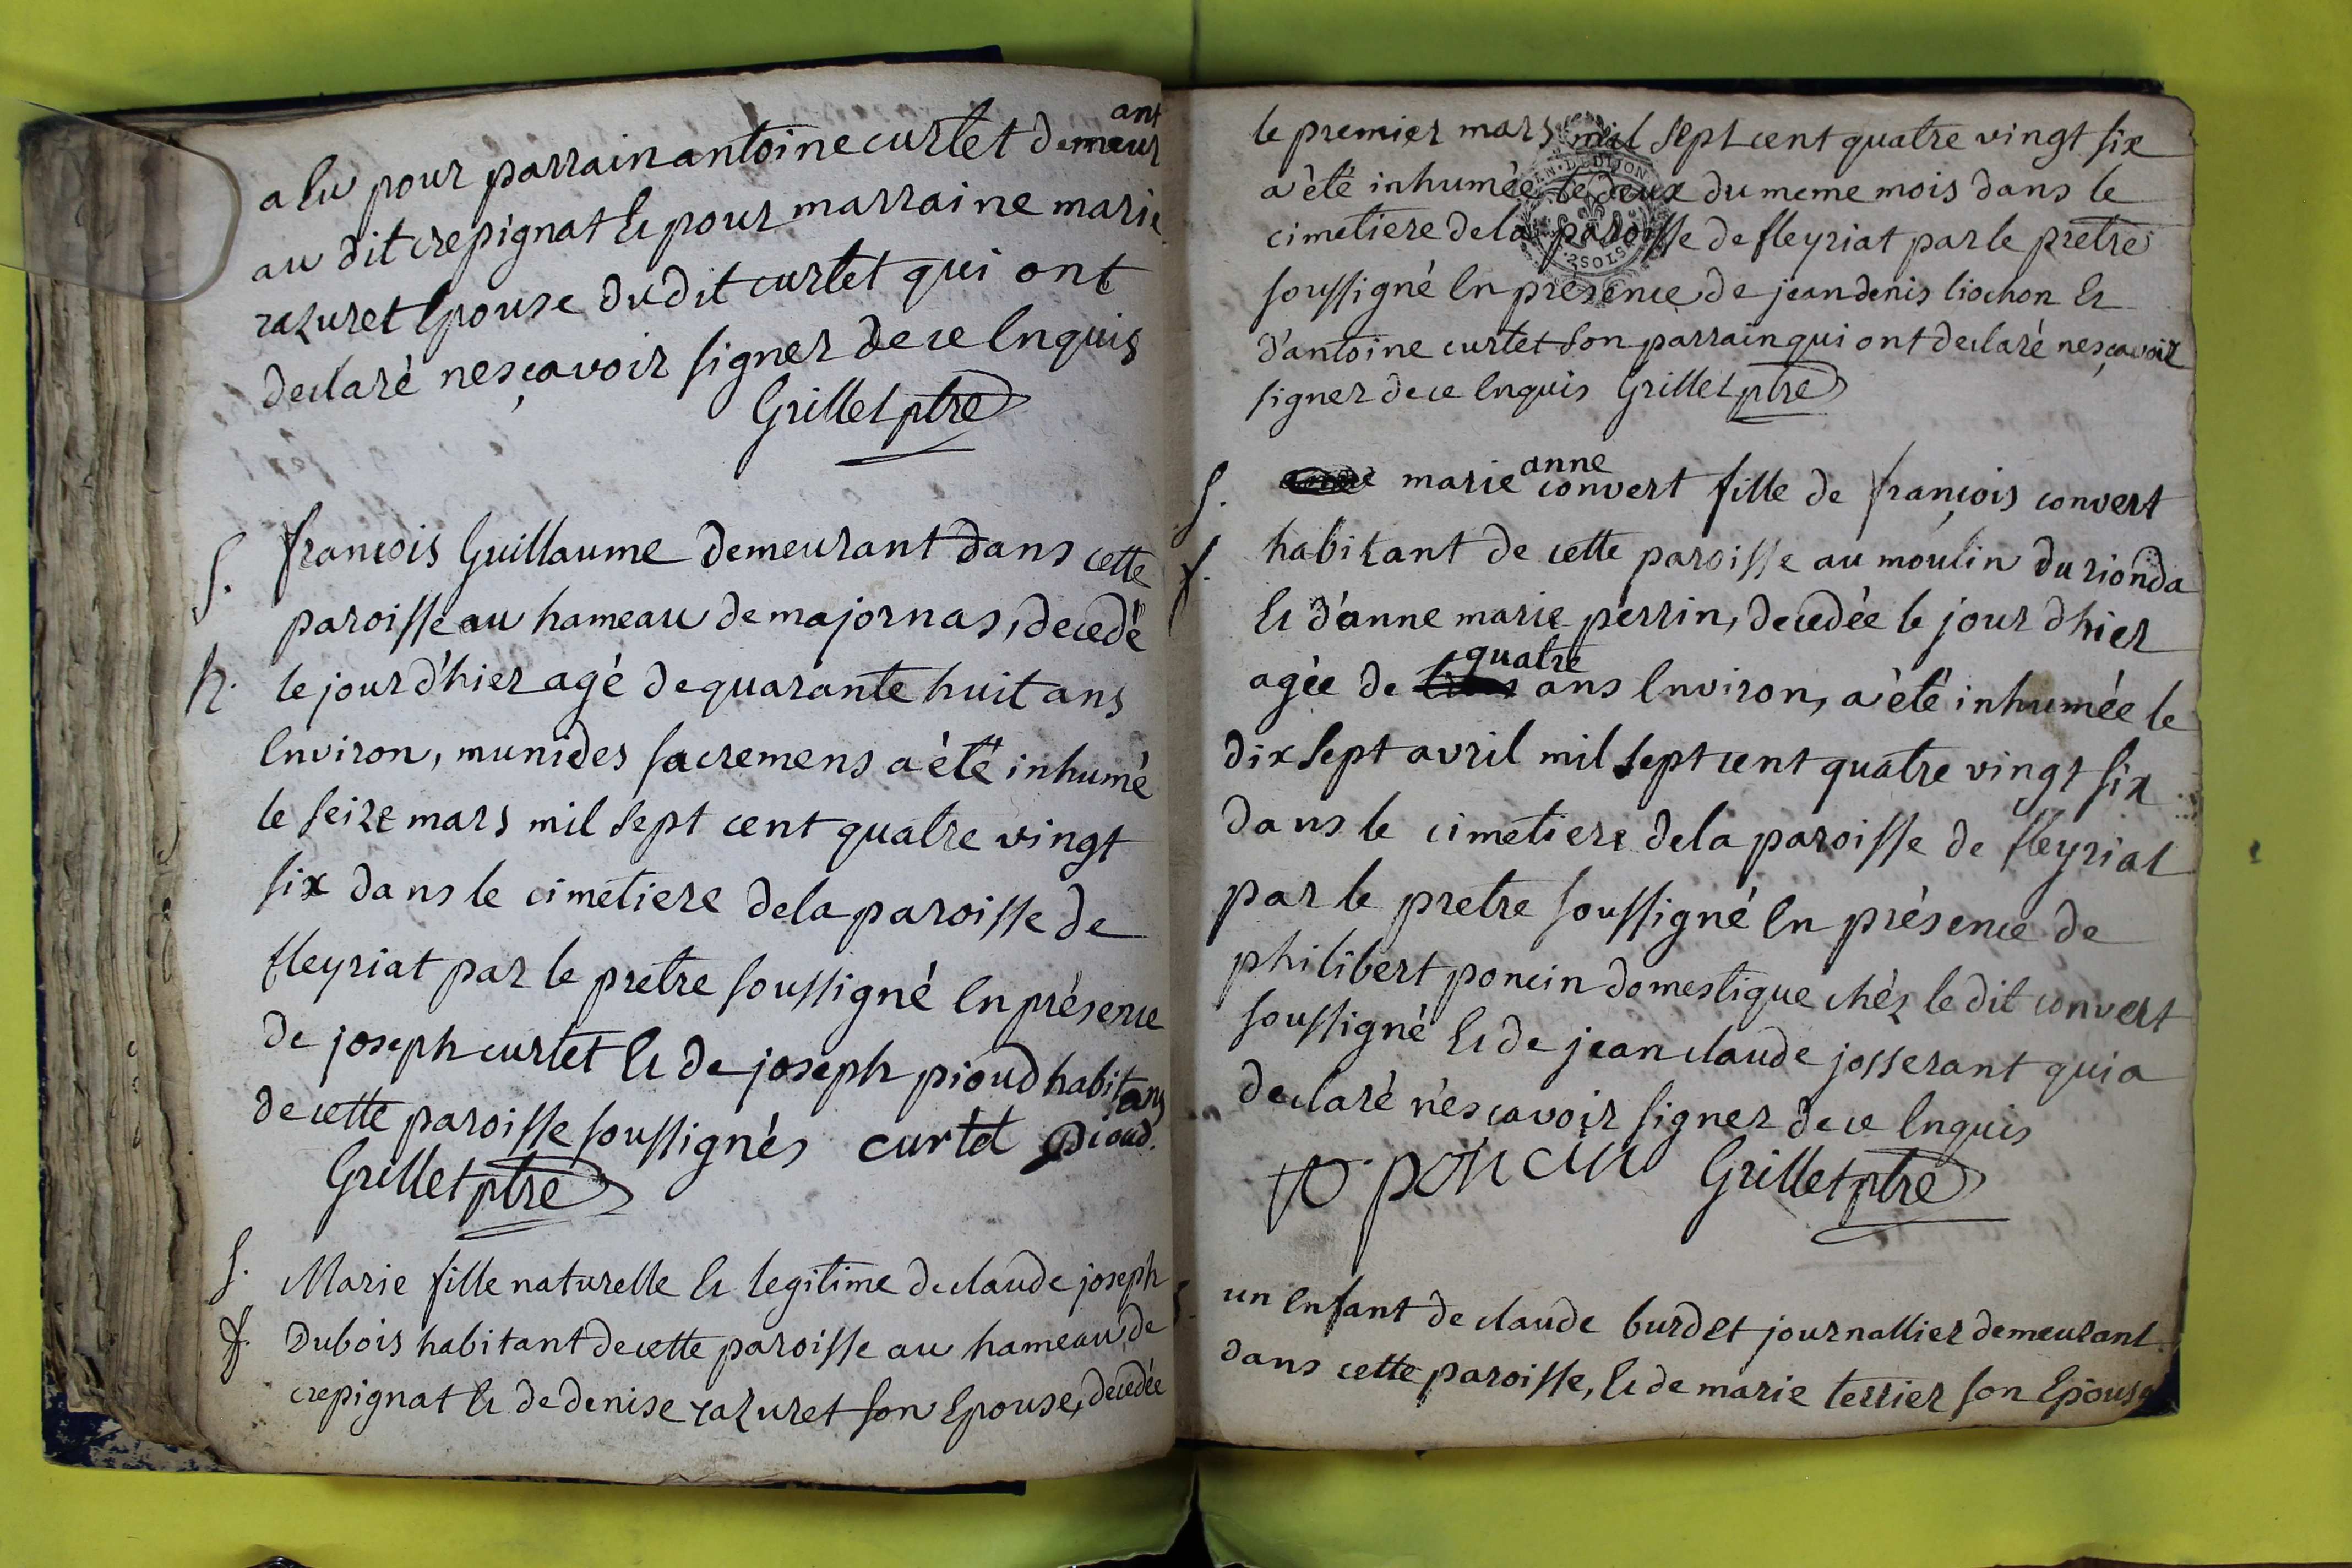 a Eu pour parrain antoine curtet demeurant
au dit crepignat Et pour marraine marie
razuret Epouse du dit curtet qui ont
declaré nesçavoir signer de ce Enquis
Grillet ptre
S. françois Guillaume demeurant dans cette
paroisse au hameau de majornas, decedé
h. le jour d'hier agé de quarante huit ans
Environ, muni des sacremens a èté inhumé
le seize mars mil sept cent quatre vingt
six dans le cimetiere dela paroisse de
fleyriat par le pretre soussigné En présence
de joseph curtet Et de joseph pioud habitans
de cette paroisse soussignés curtet pioud.
Grillet ptre
S. Marie fille naturelle Et legitime de claude joseph
f. Dubois habitant de cette paroisse au hameau de
crepignat Et de denise razuret son Epouse, decedée
le premier mars mil sept cent quatre vingt six
a èté inhumée le deux du meme mois dans le
cimetiere dela paroisse de fleyriat par le pretre
soussigné En présence de jean denis liochon Et
d'antoine curtet son parrain qui ont declaré nesçavoir
signer de ce Enquis Grillet ptre
S. marie anne convert fille de françois convert
f. habitant de cette paroisse au moulin du rionda
Et d'anne marie perrin, decedée le jour dhier
agée de quatre ans Environ, a èté inhumée le
dix sept avril mil sept cent quatre vingt six
dans le cimetiere dela paroisse de fleyriat
par le pretre soussigné En présence de
philibert poncin domestique chés le dit convert
soussigné Et de jean claude josserant qui a
declaré n'esçavoir signer de ce Enquis
p. poncin Grillet ptre
S. un Enfant de claude burdet journallier demeurant
dans cette paroisse, Et de marie terrier son Epouse